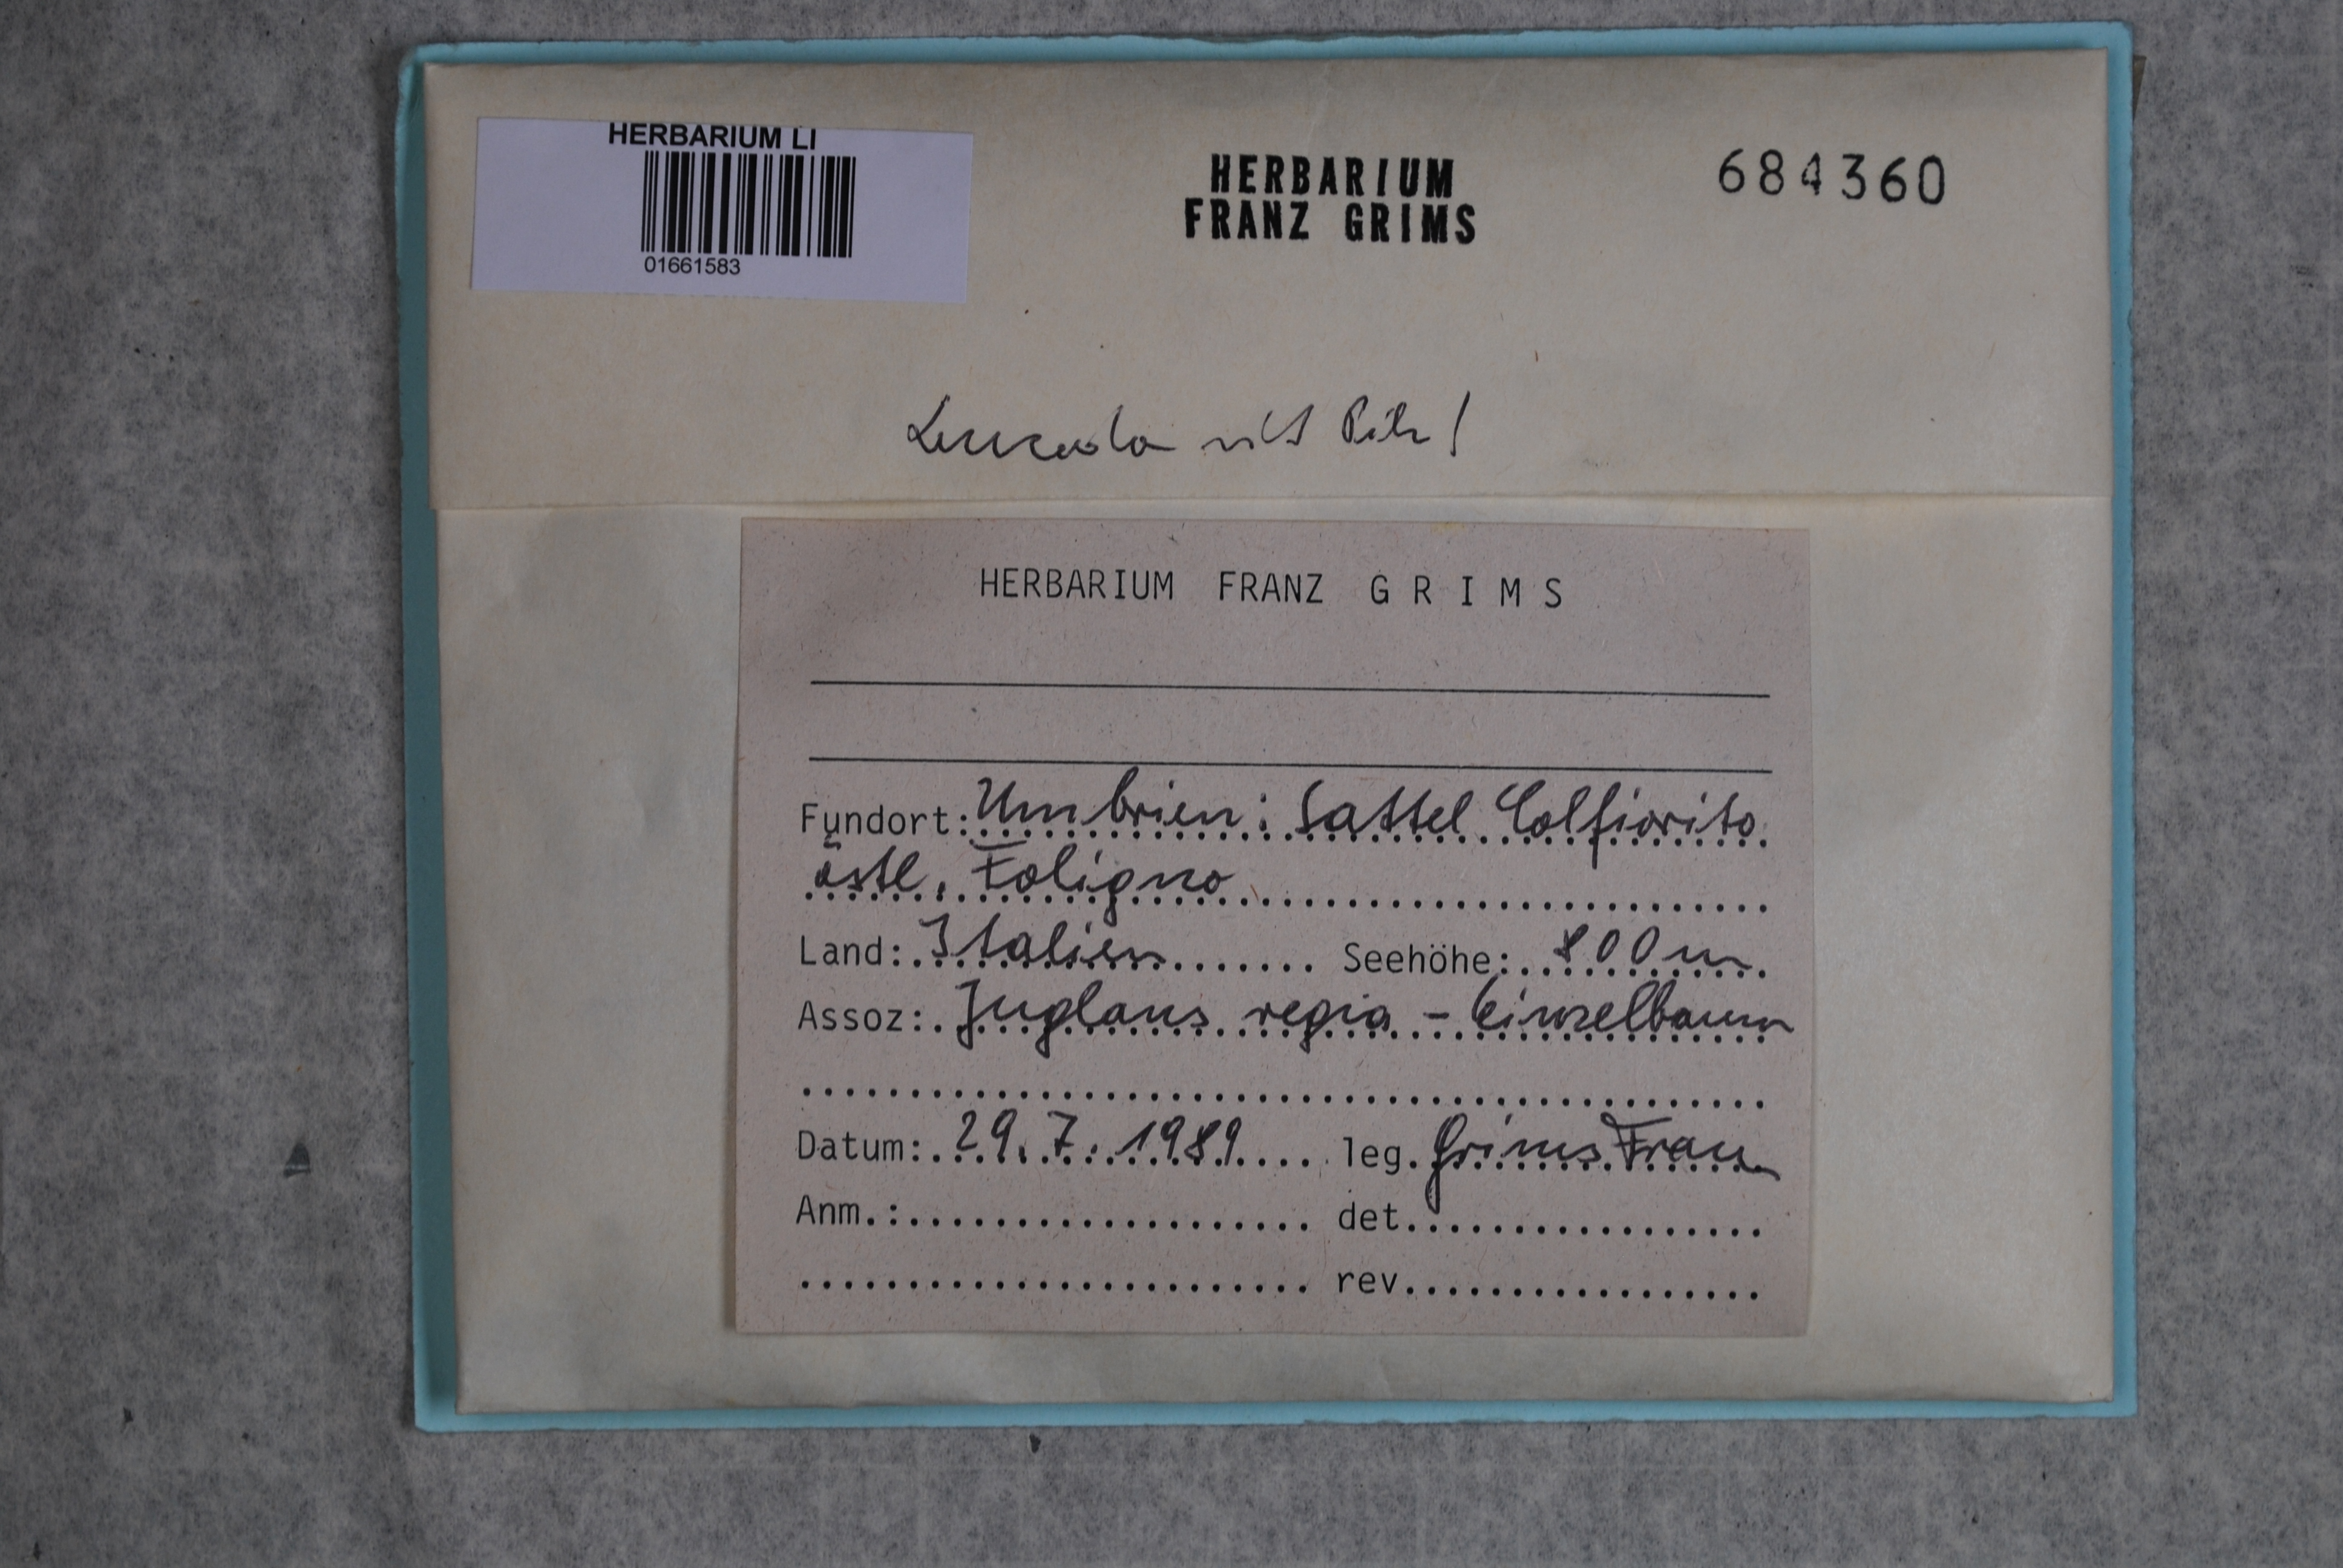 HERBARIUM LI
01661583
HERBARIUM
FRANZ GRIMS
684360
mit Pilz!
HERBARIUM FRANZ GRIMS
Fundort: Umbrien: Sattel Colfiorito
östl. Foligno
Land: Italien Seehöhe: 800 m
Assoz: Juglans regia - Einzelbaum
Datum: 29.7.1989 leg. Grims Franz
Anm.: det.
rev.